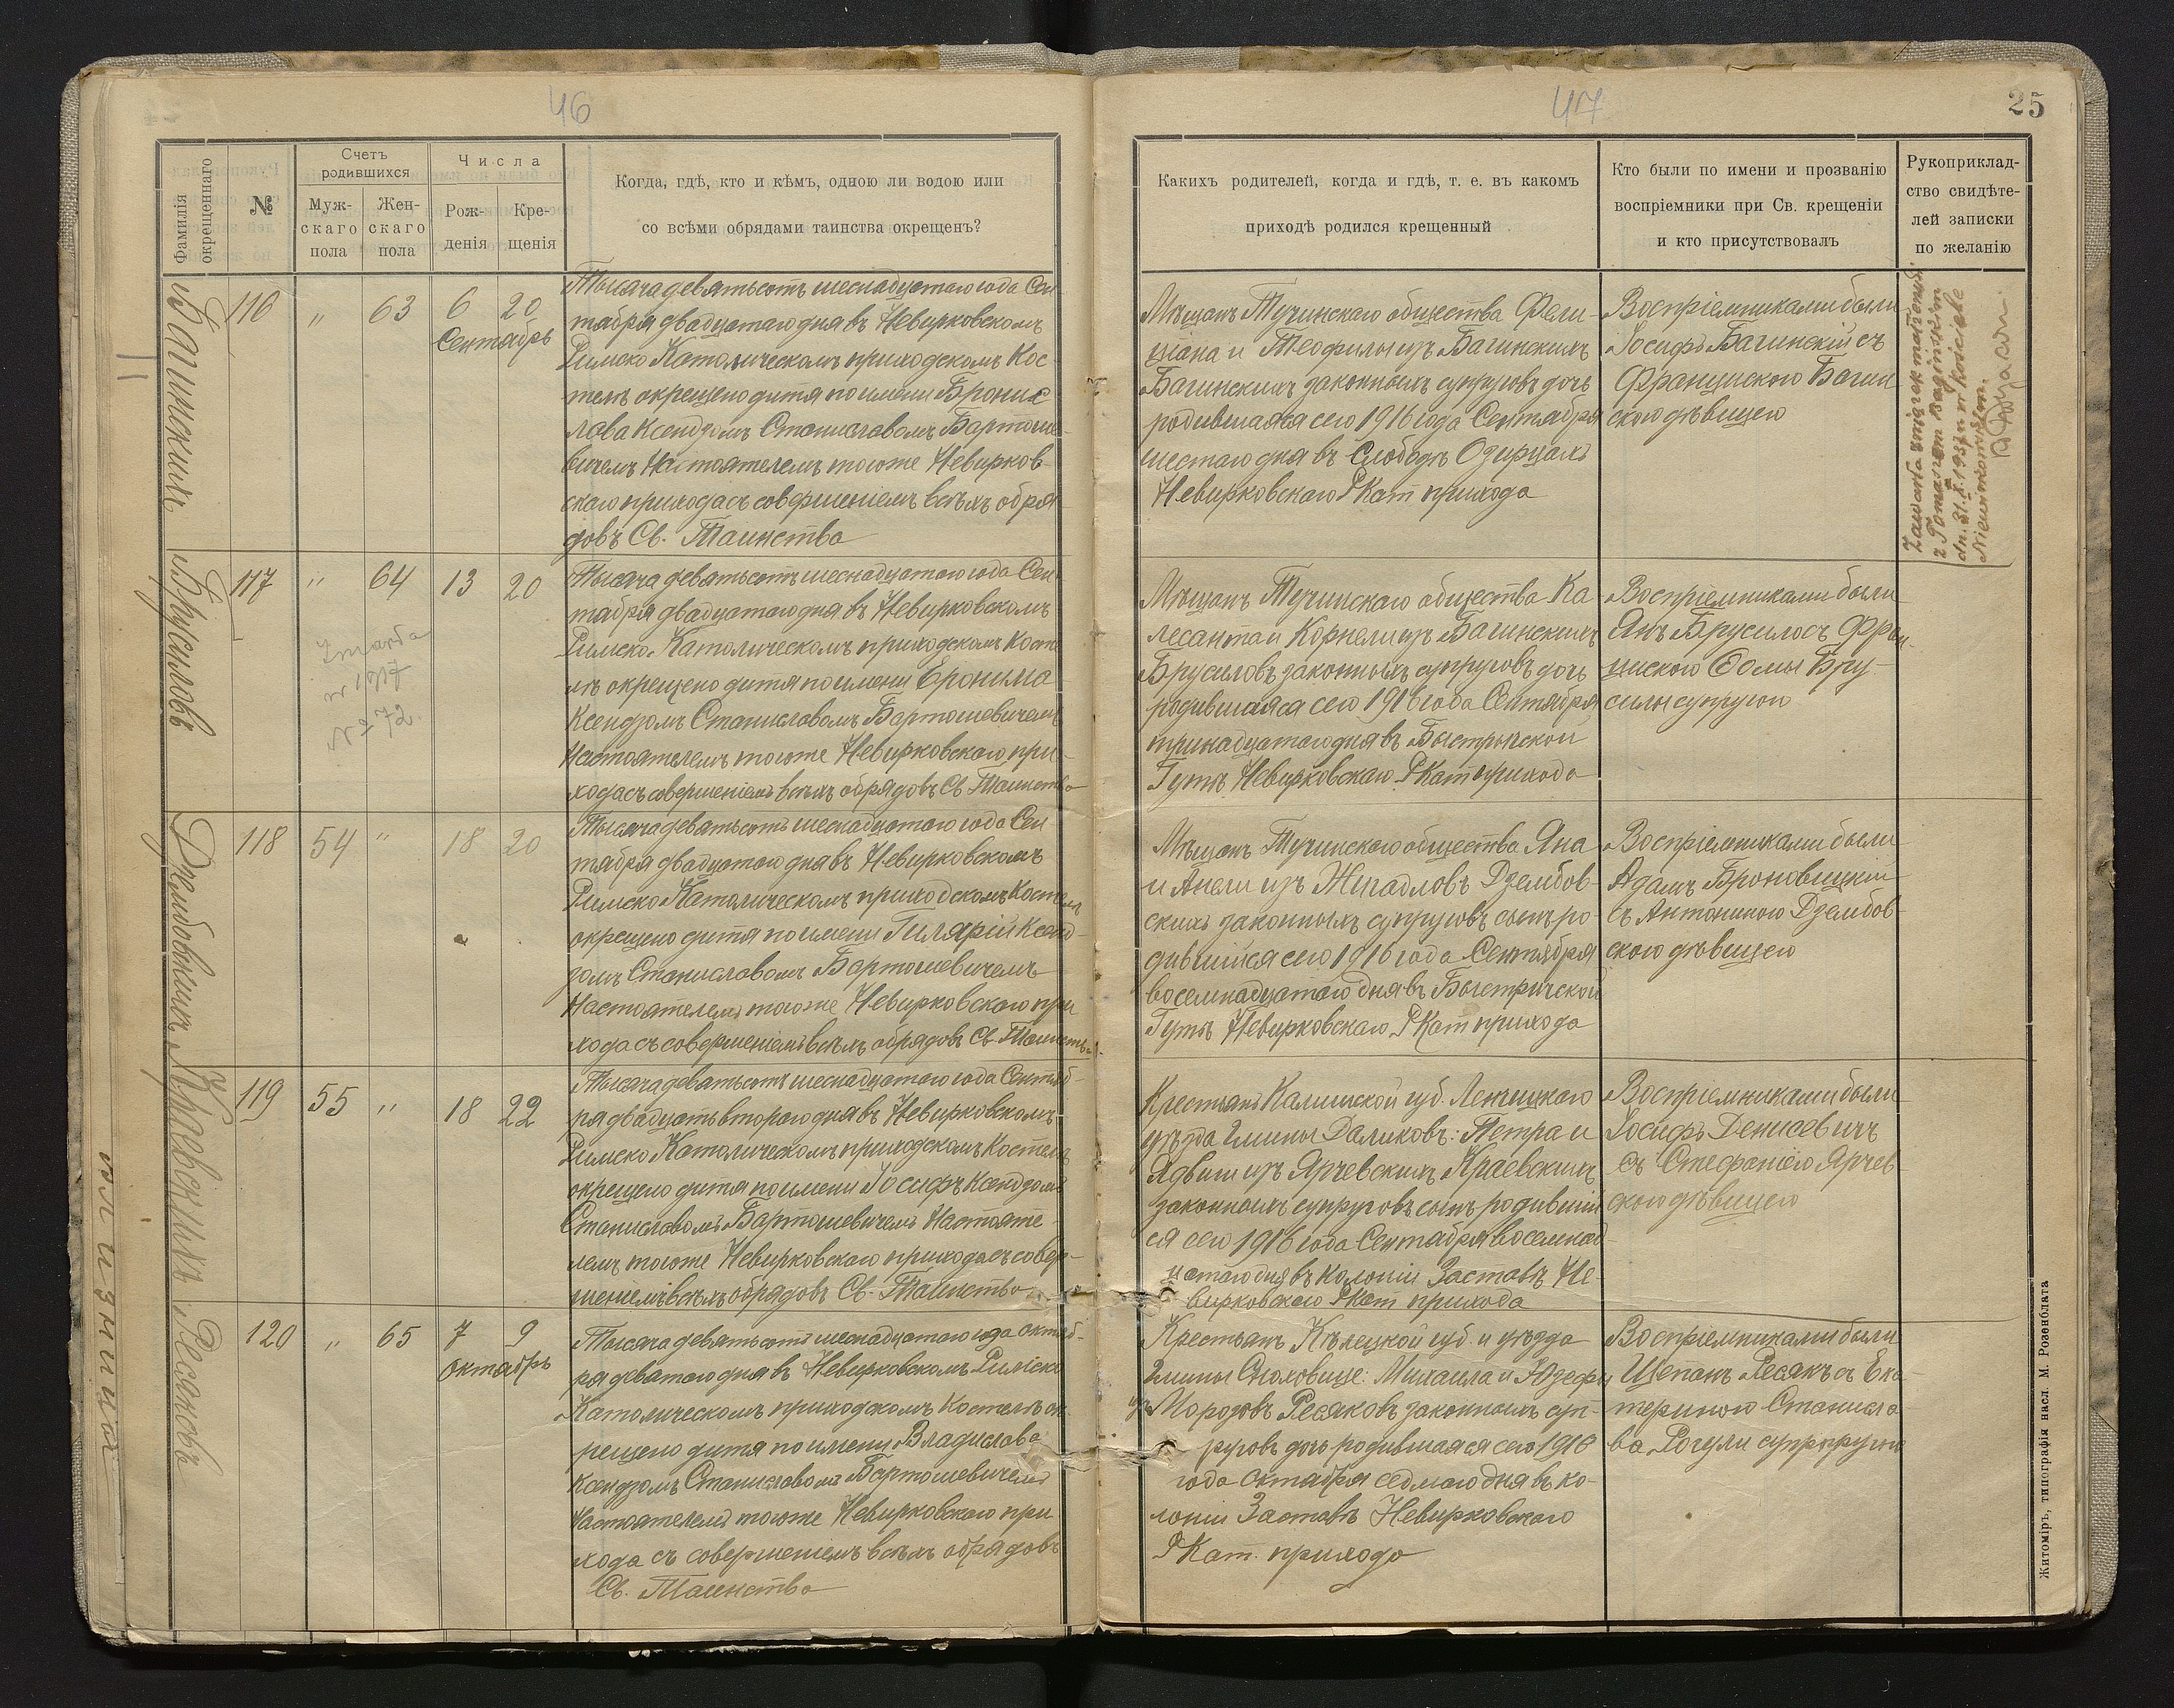 46
Фамилія
окрещеннаго
№
Счетъ
родившихся
Муж-
скаго
пола
Жен-
скаго
пола
Числа
Рож-
денія
Кре-
щенія
Когда, гдѣ, кто и кѣмъ, одною ли водою или
со всѣми обрядами таинства окрещенъ?
Багинскихъ
116 " 63 6 20
Сентябрь
Тысяча девятьсотъ шеснадцатаго года Сен
тября двадцатаго дня въ Невирковскомъ
Римско Католическомъ приходскомъ Кос
телѣ окрещено дитя по имени Бронис
лава Ксендзомъ Станиславомъ Бартоше
вичемъ Настоятелемъ тогоже Невирков
скаго прихода съ совершеніемъ всѣхъ обря
довъ Св. Таинства
Брусиловъ
117 " 64 13 20
Zmarła
w 1917
№ 72.
Тысяча девятьсотъ шеснадцатаго года Сен
тября двадцатаго дня въ Невирковскомъ
Римско Католическомъ приходскомъ Косте
лѣ окрещено дитя по имени Еронима
Ксендзомъ Станиславомъ Бартошевичемъ
Настоятелемъ тогоже Невирковскаго при
хода съ совершеніемъ всѣхъ обрядовъ Св Таинства
Дзембовскихъ
118 54 " 18 20
Тысяча девятьсотъ шеснадцатаго года Сен
тября двадцатаго дня въ Невирковскомъ
Римско Католическомъ приходскомъ Костелѣ
окрещено дитя по имени Гилярій Ксенд
зомъ Станиславомъ Бартошевичемъ
Настоятелемъ тогоже Невирковскаго при
хода съ совершеніемъ всѣхъ обрядовъ Св. Таинства
Краевскихъ
119 55 " 18 22
Тысяча девятьсотъ шеснадцатаго года Сентяб-
ря двадцать втораго дня въ Невирковскомъ
Римско Католическомъ приходскомъ Костелѣ
окрещено дитя по имени Іосифъ Ксендзомъ
Станиславомъ Бартошевичемъ Настояте-
лемъ тогоже Невирковскаго прихода съ совер-
шеніемъ всѣхъ обрядовъ Св. Таинства
Ресяковъ
120 " 65 7 9
Октябрь
Тысяча девятьсотъ шеснадцатаго года Октяб-
ря девятаго дня въ Невирковскомъ Римско
Католическомъ приходскомъ Костелѣ ок
рещено дитя по имени Владислава
Ксендзомъ Станиславомъ Бартошевичемъ
Настоятелемъ тогоже Невирковскаго при
хода съ совершеніемъ всѣхъ обрядовъ
Св. Таинства
47
25
Какихъ родителей, когда и гдѣ, т. е. въ какомъ
приходѣ родился крещенный
Кто были по имени и прозванію
воспріемники при Св. крещеніи
и кто присутствовалъ
Рукоприклад-
ство свидѣте-
лей записки
по желанію
Мѣщанъ Тучинскаго общества Фели-
ціана и Теофилы изъ Багинскихъ
Багинскихъ законныхъ супруговъ дочь
родившаяся сего 1916 года Сентября
шестаго дня въ Слободѣ Озирцахъ
Невирковскаго Р Кат прихода
Воспріемниками были
Іосифъ Багинскій съ
Францискою Багин
скою дѣвицею
Zawarła związek małżeński
z Tomaszem Bagińskim
dn. 31.I.1937 r. w kościele
Niewirkowskim.
Мѣщанъ Тучинскаго общества Ка
лесанта и Корнели изъ Багинскихъ
Брусиловъ законныхъ супруговъ дочь
родившаяся сего 1916 года Сентября
тринадцатаго дня въ Быстричской
Гутѣ Невирковскаго Р Кат прихода
Воспріемниками были
Янъ Брусило съ Фран-
циского Бру-
силы супругою
Мѣщанъ Тучинскаго общества Яна
и Анели изъ Жигадловъ Дзембов-
скихъ законныхъ супруговъ сынъ ро-
дившійся сего 1916 года Сентября
восемнадцатаго дня въ Быстричской
Гутѣ Невирковскаго Р Кат прихода
Воспріемниками были
Адамъ Броновицкій
съ Антониною Дзембов-
скою дѣвицею
Крестьянъ Калишской губ. Ленчицкаго
уѣзда Гмины Даликовъ: Петра и
Ядвиги изъ Ярчевскихъ Краевскихъ
законныхъ супруговъ сынъ родившій
ся сего 1916 года Сентября восемнад-
цатаго дня въ колоніи Заставѣ Не-
вирковскаго Р Кат прихода
Воспріемниками были
Іосифъ Денисевичъ
съ Стефаніею Ярчев-
скою дѣвицею
Крестьянъ Кѣлецкой губ. и уѣзда
Гмины Сноховице: Михаила и Юзефы
изъ Морозовъ Ресяковъ законныхъ суп-
руговъ дочь родившаяся сего 1916
года Октября седмаго дня въ ко-
лоніи Заставѣ Невирковскаго
Р Кат. прихода
Воспріемниками были
Щепанъ Ресякъ съ Ека-
териною Станисла
ва Рогули супругою
Житоміръ, типографія насл. М. Розенблата